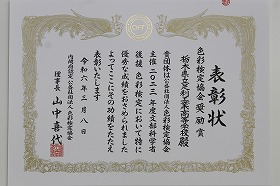 表彰状
色彩検定協会 奨励賞
栃木県立足利工業高等学校殿
貴団体は公益社団法人色彩検定協会
主催二〇二三年度文部科学省
後援色彩検定において特に
優秀な成績をおさめられました
よってここにその功績をたたえ
表彰いたします
令和六年三月八日
内閣府認定 公益社団法人色彩検定協会
理事長 山中喜代